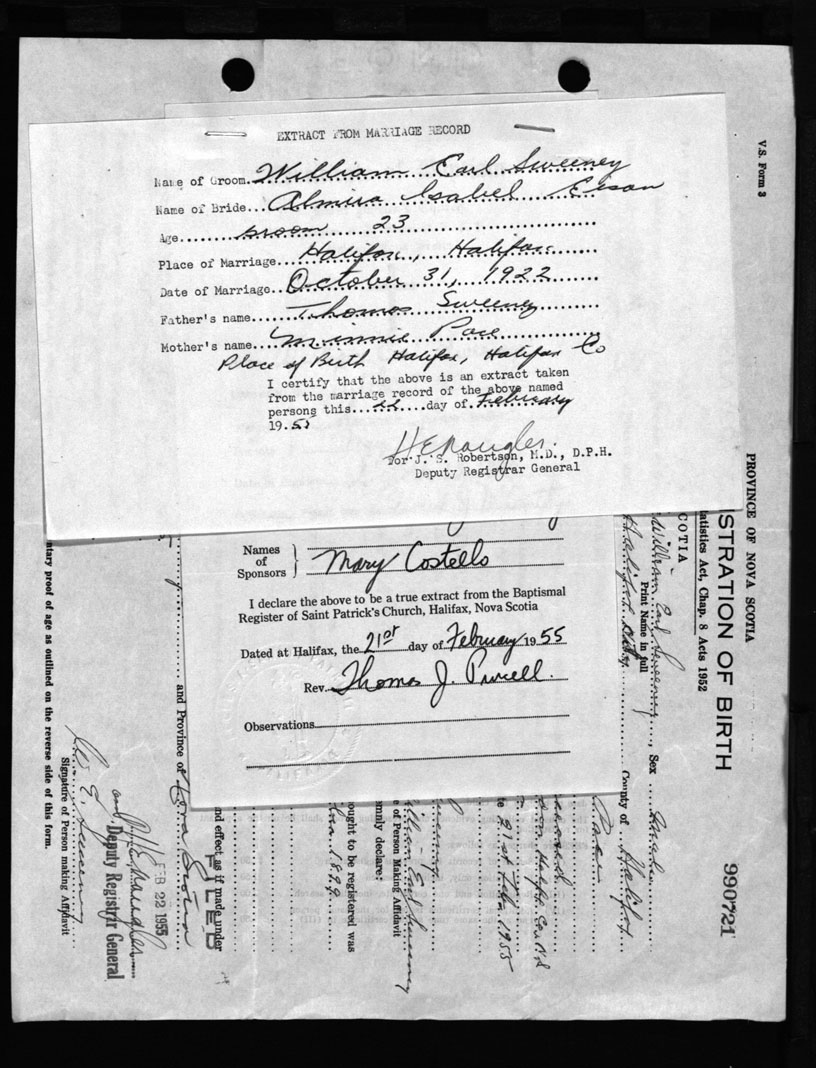 EXTRACT FROM MARRIAGE RECORD
Name of Groom William Earl Sweeney
Name of Bride Almira Isabel
Age groom 23
Place of Marriage Halifax, Halifax
Date of Marriage October 31, 1922
Father's name Thomas Sweeney
Mother's name Minnie
Place of Birth Halifax, Halifax Co
I certify that the above is an extract taken
from the marriage record of the above named
persons this 22 day of February
19
For J. S. Robertson, M.D., D.P.H.
Deputy Registrar General
Names of Sponsors } Mary Costello
I declare the above to be a true extract from the Baptismal
Register of Saint Patrick's Church, Halifax, Nova Scotia
Dated at Halifax, the 21st day of February 1955
Rev. Thomas J.
Observations
V.S. Form 3
PROVINCE OF NOVA SCOTIA
STRATION OF BIRTH
990721
tatistics Act, Chap. 8 Acts 1952
COTIA
William Earl Sweeney, Sex
Print Name in full
Halifax City County of Halifax
te 21st Feb 1955
illiam Earl Sweeney
e of Person Making Affidavit
mnly declare:
ought to be registered was
1899
nd effect as if made under
FILED
and Province of Nova Scotia
FEB 22 1955
and Deputy Registrar General
Wm E. Sweeney
Signature of Person making Affidavit
ntary proof of age as outlined on the reverse side of this form.